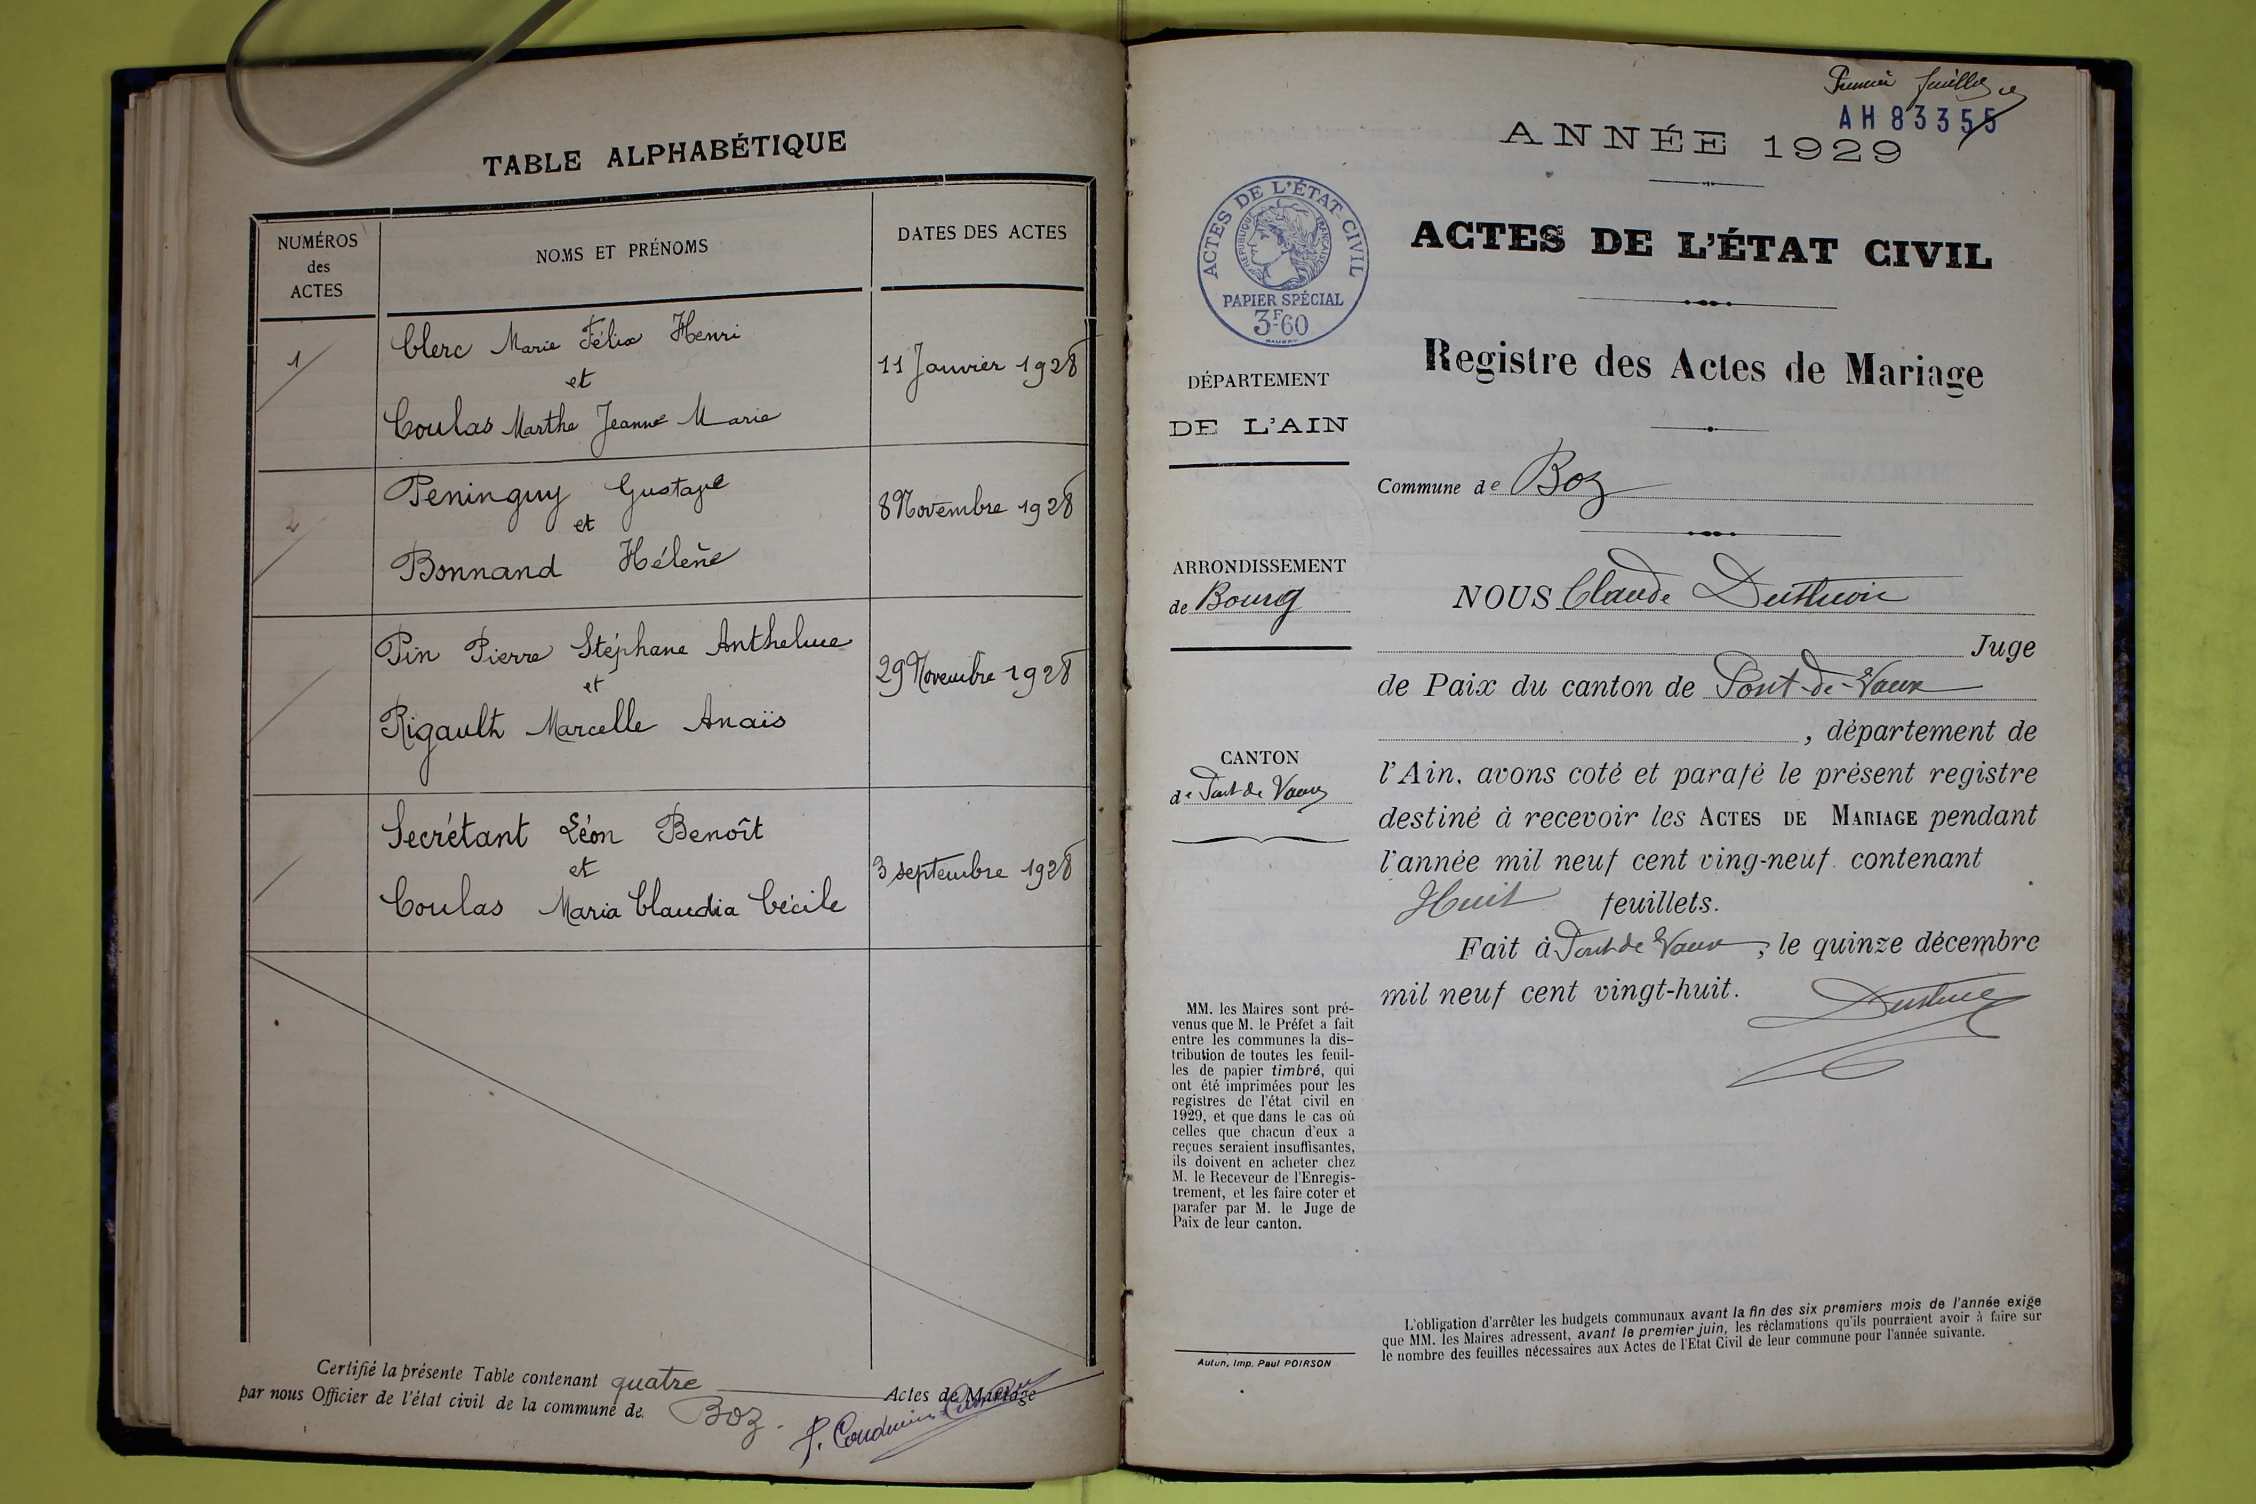 TABLE ALPHABÉTIQUE
NUMÉROS
des
ACTES
NOMS ET PRÉNOMS
DATES DES ACTES
1
Clerc Marie Félix Henri
et
Coulas Marthe Jeanne Marie
11 Janvier 1928
2
Peninguy Gustave
et
Bonnand Hélène
8 Novembre 1928
Pin Pierre Stéphane Anthelme
et
Rigault Marcelle Anaïs
29 Novembre 1928
Secrétant Léon Benoît
et
Coulas Maria Claudia Cécile
3 septembre 1928
Certifié la présente Table contenant quatre Actes de Mariage
par nous Officier de l'état civil de la commune de Boz.
Premier feuillet
AH 83355
ANNÉE 1929
ACTES DE L'ÉTAT-CIVIL
RÉPUBLIQUE FRANÇAISE
PAPIER SPÉCIAL
3F60
ACTES DE L'ÉTAT CIVIL
Registre des Actes de Mariage
DÉPARTEMENT
DE L'AIN
Commune de Boz
ARRONDISSEMENT
de Bourg
CANTON
de Pont de Vaux
NOUS Claude
Juge
de Paix du canton de Pont-de-Vaux
, département de
l'Ain, avons coté et parafé le présent registre
destiné à recevoir les ACTES DE MARIAGE pendant
l'année mil neuf cent ving-neuf contenant
Huit feuillets.
Fait à Pont de Vaux, le quinze décembre
mil neuf cent vingt-huit.
MM. les Maires sont pré-
venus que M. le Préfet a fait
entre les communes la dis-
tribution de toutes les feuil-
les de papier timbré, qui
ont été imprimées pour les
registres de l'état civil en
1929, et que dans le cas où
celles que chacun d'eux a
reçues seraient insuffisantes,
ils doivent en acheter chez
M. le Receveur de l'Enregis-
trement, et les faire coter et
parafer par M. le Juge de
Paix de leur canton.
Autun, Imp. Paul POIRSON
L'obligation d'arrêter les budgets communaux avant la fin des six premiers mois de l'année exige
que MM. les Maires adressent, avant le premier juin, les réclamations qu'ils pourraient avoir à faire sur
le nombre des feuilles nécessaires aux Actes de l'Etat Civil de leur commune pour l'année suivante.